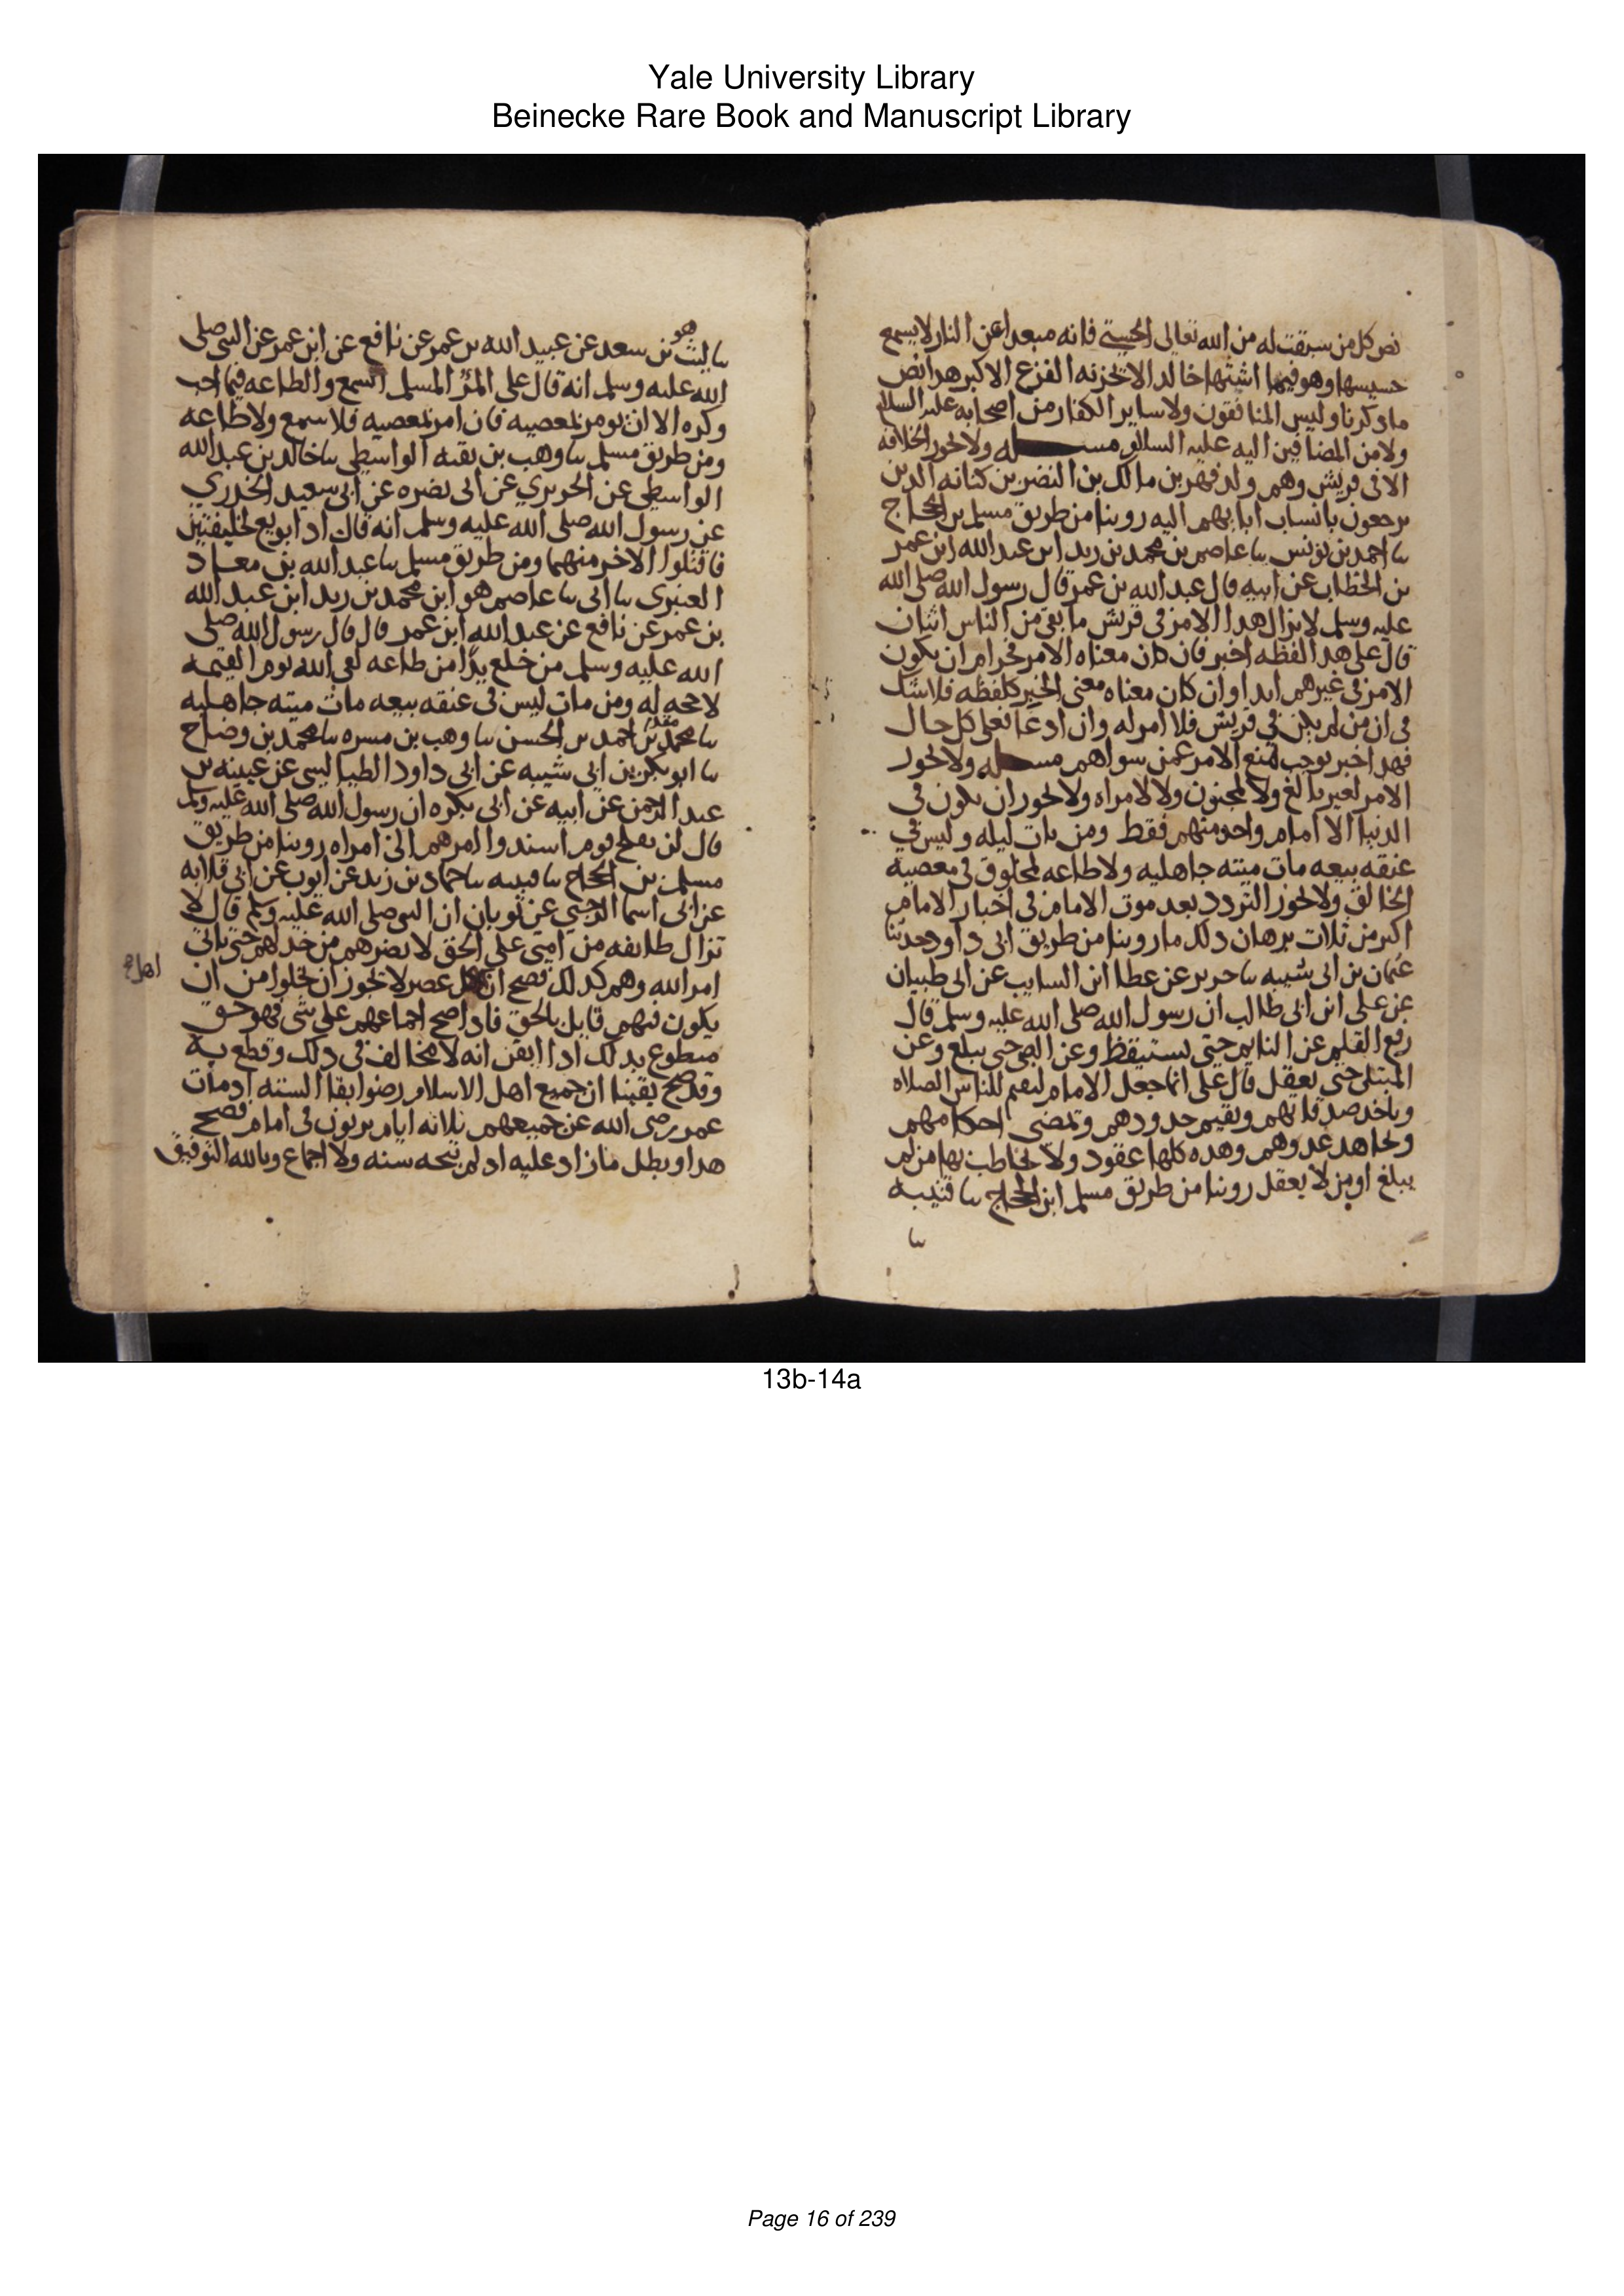 Yale University Library
Beinecke Rare Book and Manuscript Library
نص كل من سبقت له من الله تعالى الحسنى فانه مبعد عن النار لا يسمع
حسيسها وهو فيما اشتهى خالد لا يحزنه الفزع الاكبر هدا نص
ما دكرنا وليس المنافقون ولا ساير الكفار من اصحابه عليه السلام
ولا من المضافين اليه عليه السلام مسله ولا تجوز الخلافه
الا فى قريش وهم ولد فهر بن مالك بن النضر بن كنانه الدين
يرجعون بانساب ابايهم اليه روينا من طريق مسلم بن الحجاج
ىنا احمد بن يونس ىنا عاصم بن محمد بن زيد ابن عبد الله ابن عمر
بن الخطاب عن ابيه قال عبد الله بن عمر قال رسول الله صلى الله
عليه وسلم لا يزال هدا الامر فى قريش ما بقى من الناس اثنان
قال على هده الفظه اخبر فان كان معناه الامر فحرام ان يكون
الامر فى غيرهم ابدا وان كان معناه معنى الخبر كلفظه فلا شك
فى ان من لم يكن فى قريش فلا امر له وان ادعا فعلى كل حال
فهدا خبر يوجب منع الامر عمن سواهم مسله ولا تجوز
الامر لغير بالغ ولا لمجنون ولا لامراه ولا تجوز ان يكون فى
الدنيا الا امام واحد منهم فقط ومن بات ليله وليس فى
عنقه بيعه مات ميته جاهليه ولا طاعه لمخلوق فى معصيه
الخالق ولا تجوز التردد بعد موت الامام فى اختيار الامام
اكثر من ثلاث برهان دلك ما روينا من طريق ابى داود حدثنا
عثمان بن ابى شيبه ىنا جرير عن عطا ابن السايب عن ابى ظبيان
عن على ابن ابى طالب ان رسول الله صلى الله عليه وسلم قال
رفع القلم عن النايم حتى يستيقظ وعن الصبى حتى يبلغ وعن
المبتلى حتى يعقل قال على انما جعل الامام ليقيم للناس الصلاه
وياخد صدقاتهم ويقيم حدودهم وتمضى احكامهم
وتجاهد عدوهم وهده كلها عقود ولا يخاطب بها من لم
يبلغ او من لا يعقل روينا من طريق مسلم ابن الحجاج ىنا قتيبه
ىنا
هو
ىنا ليث بن سعد عن عبيد الله بن عمر عن نافع عن ابن عمر عن النبى صلى
الله عليه وسلم انه قال على المرء المسلم السمع والطاعه فيما احب
وكره الا ان يومر بمعصيه فان امر بمعصيه فلا سمع ولا طاعه
ومن طريق مسلم ىنا وهب بن بقيه الواسطى ىنا خالد بن عبد الله
الواسطى عن الجريرى عن ابى نضره عن ابى سعيد الخدرى
عن رسول الله صلى الله عليه وسلم انه قال ادا بويع لخليفتين
فاقتلوا الاخر منهما ومن طريق مسلم ىنا عبد الله بن معاد
العنبرى ىنا ابى ىنا عاصم هو ابن محمد بن زيد ابن عبد الله
بن عمر عن نافع عن عبد الله ابن عمر قال قال رسول الله صلى
الله عليه وسلم من خلع يدا من طاعه لقى الله يوم القيمه
لا حجه له ومن مات ليس فى عنقه بيعه مات ميته جاهليه
ىنا محمد بن احمد بن الحسن ىنا وهب بن مسره ىنا محمد بن وضاح
ىنا ابو بكر بن ابى شيبه عن ابى داود الطيالسى عن عيينه بن
عبد الرحمن عن ابيه عن ابى بكره ان رسول الله صلى الله عليه وسلم
قال لن يفلح قوم اسندوا امرهم الى امراه روينا من طريق
مسلم بن الحجاج ىنا قتيبه ىنا حماد بن زيد عن ايوب عن ابى قلابه
عن ابى اسما الرحبى عن ثوبان ان النبى صلى الله عليه وسلم قال لا
تزال طايفه من امتى على الحق لا يضرهم من خدلهم حتى ياتى
امر الله وهم كدلك فصح ان كل عصر لا تجوز ان تخلوا من ان
اهل
يكون فيهم قايل بالحق فادا صح اجماعهم على شى فهو حق
مقطوع بدلك ادا ايقن انه لا مخالف فى دلك وقطع به
وقد صح يقينا ان جميع اهل الاسلام رضوا بقا السته اد مات
عمر رضى الله عن جميعهم ثلاثه ايام يرتون فى امام فصح
هدا وبطل ما زاد عليه اد لم تبحه سنه ولا اجماع وبالله التوفيق
13b-14a
Page 16 of 239